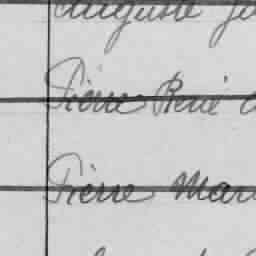 Auguste
Pierre René
Pierre Mari